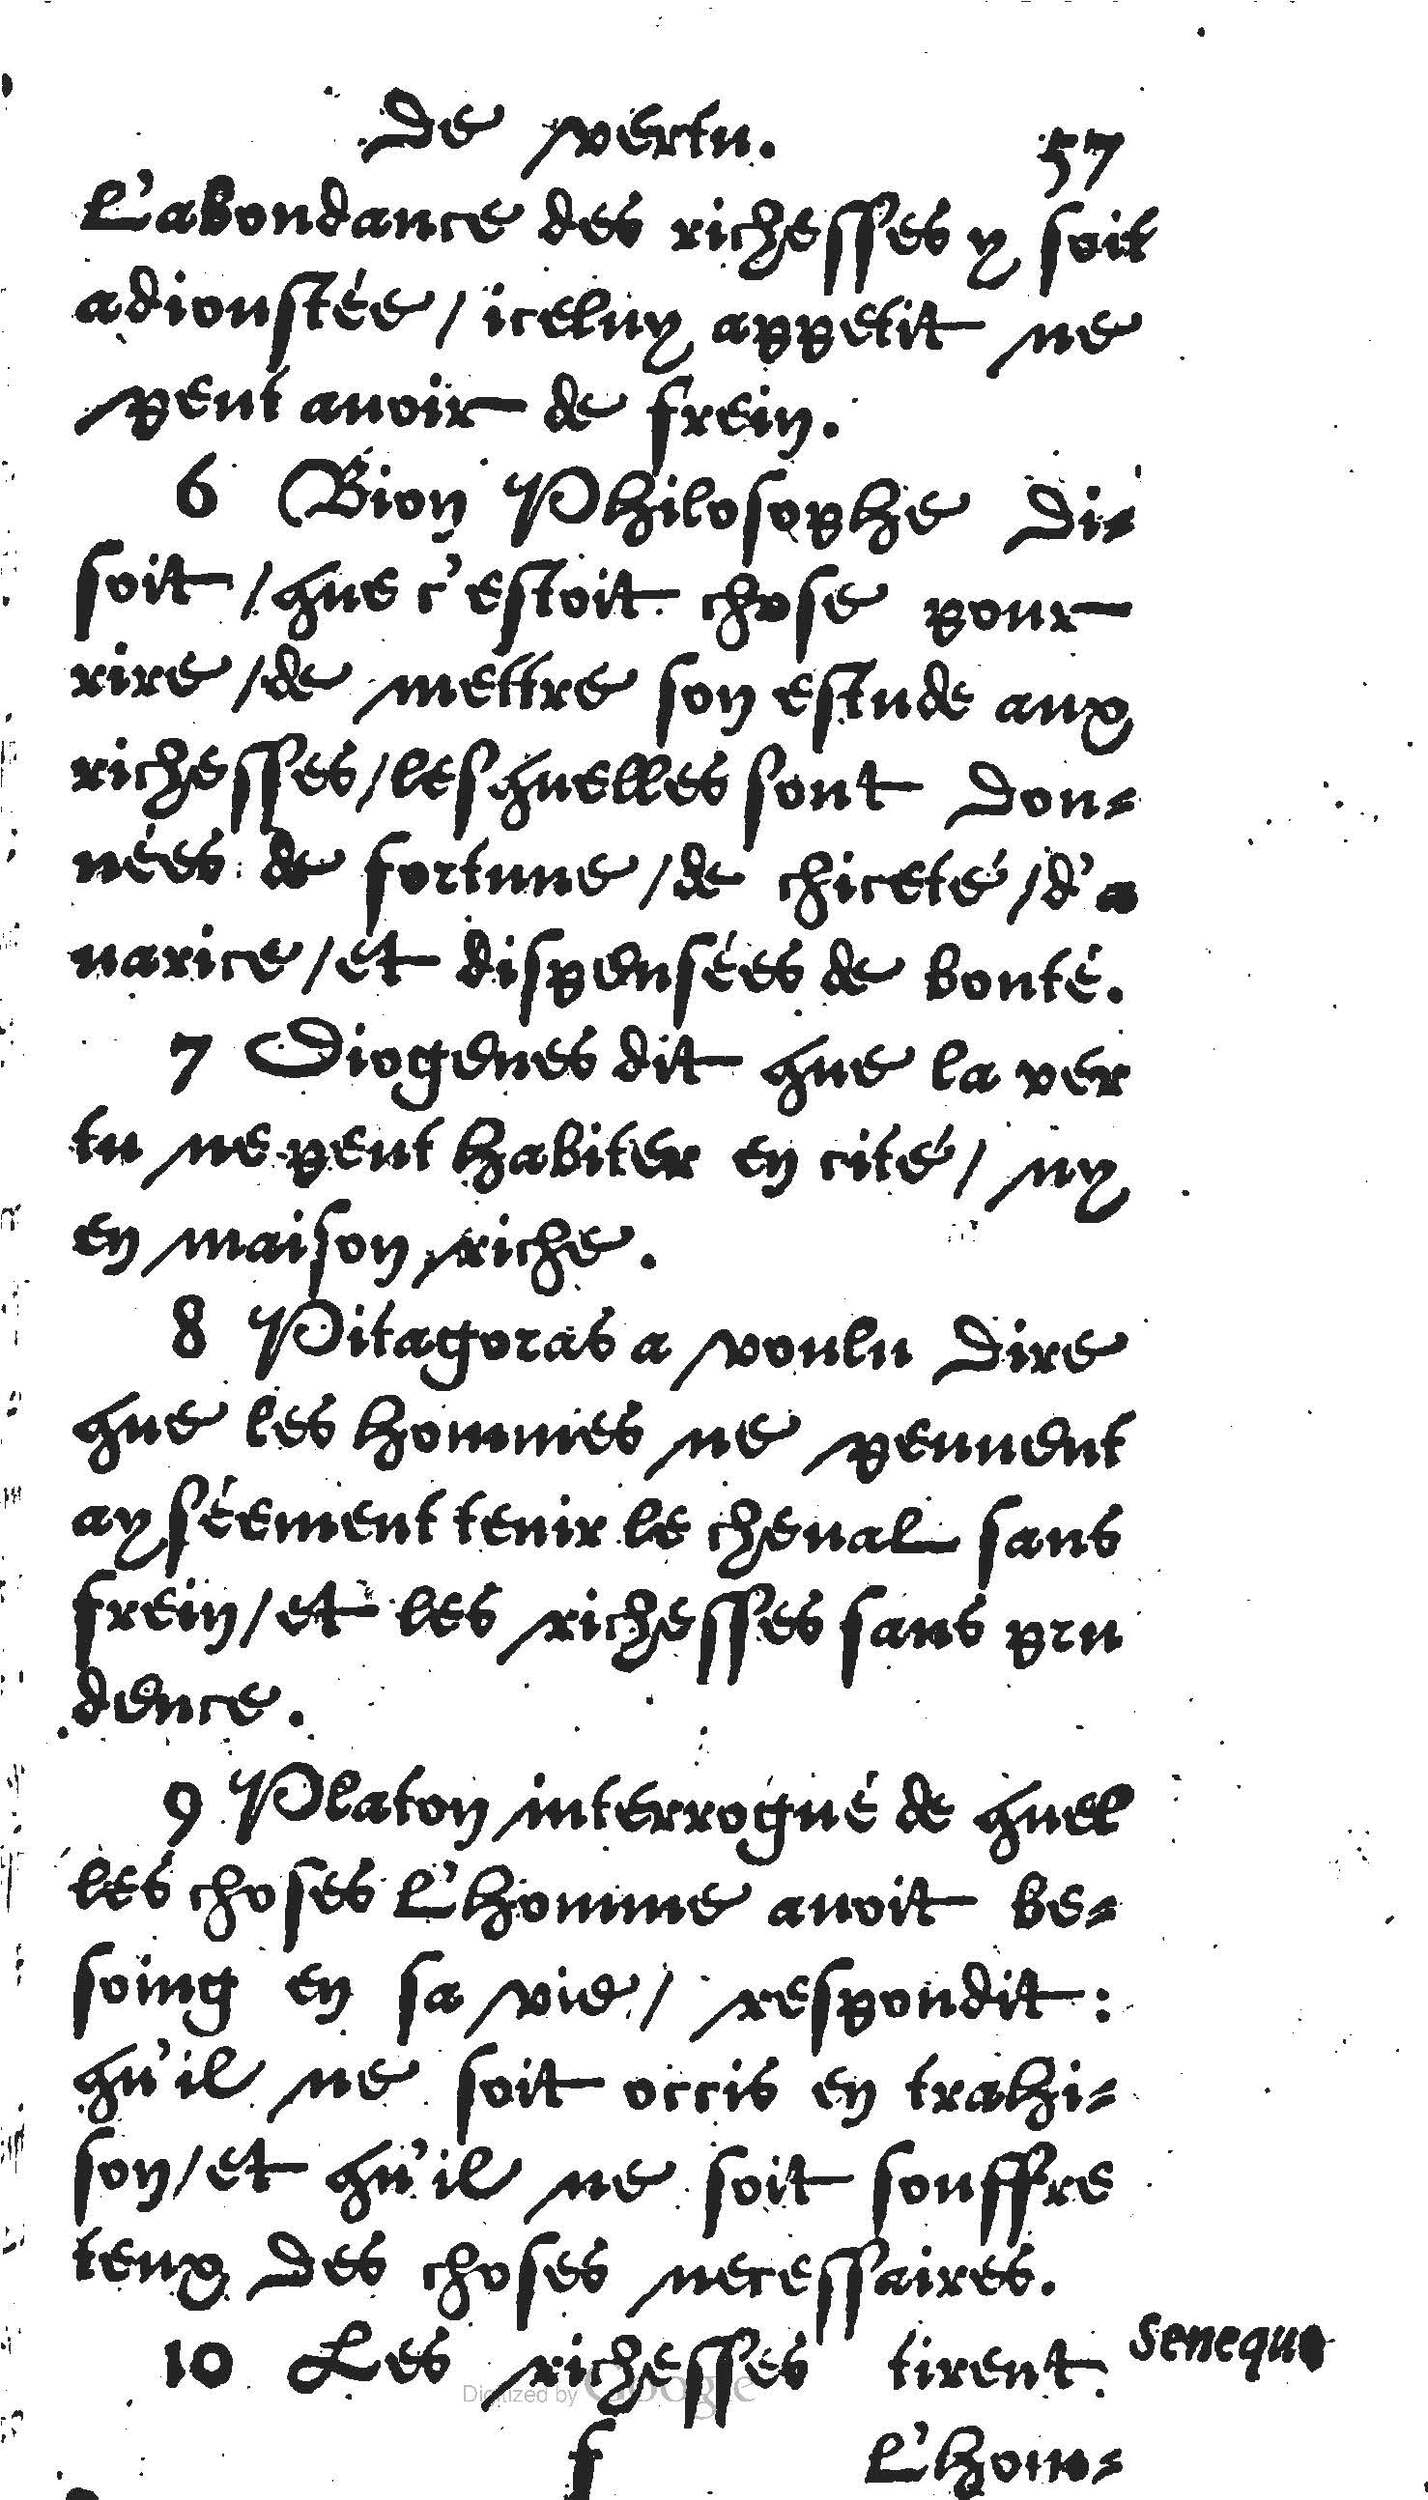 De vertu. 57
L'abondance des richesses y soit
adioustée / iceluy appetit ne
peut auoir de frein.
6 Bion Philosophe di-
soit / que c'estoit chose pour
rire / de mettre son estude aux
richesses / lesquelles sont don-
nées de fortune / de chiceté / d'a
uarice / et dispensées de bonté.
7 Diogenes dit que la ver
tu ne peut habiter en cité / ny
en maison riche.
8 Pitagoras a voulu dire
que les hommes ne peuuent
ayséement tenir le cheual sans
frein / et les richesses sans pru
dence.
9 Platon interrogué de quel
les choses l'homme auoit be-
soing en sa vie / respondit :
qu'il ne soit occis en trahi-
son / et qu'il ne soit souffre
teux des choses necessaires.
10 Les richesses tirent Seneque
Digitized by Google
f l'hom-